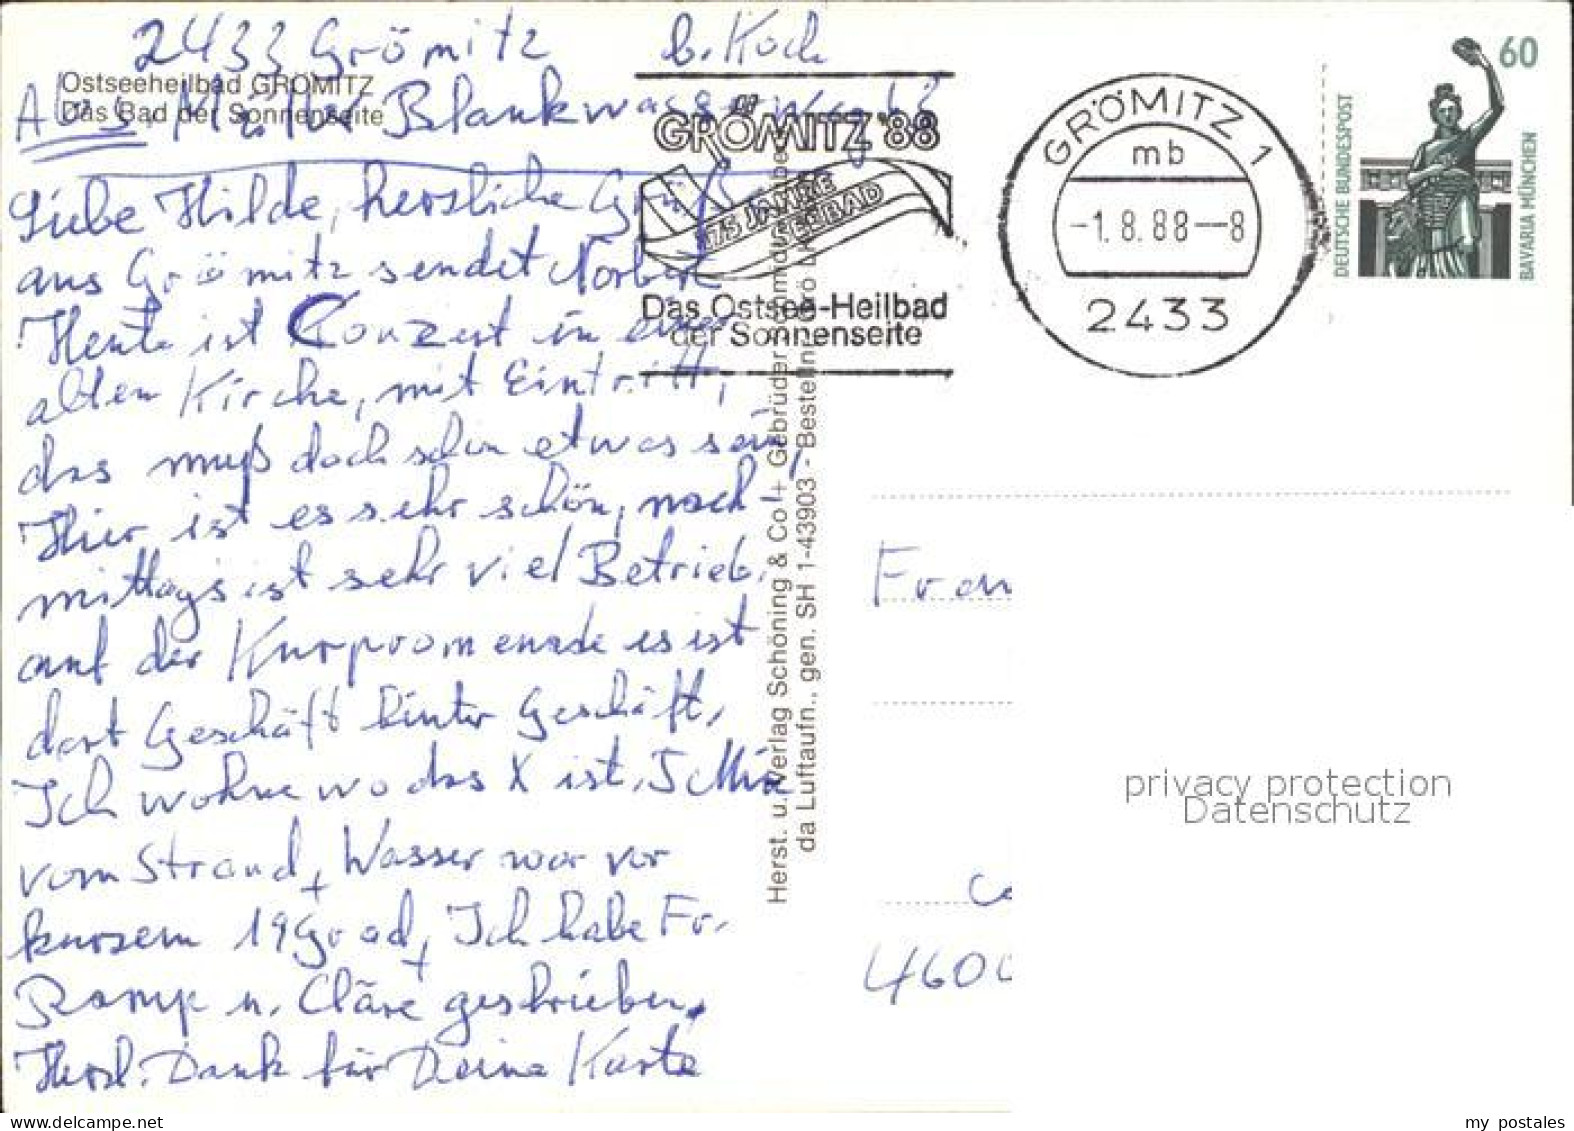 2433 Grömitz b. Koch
Ostseeheilbad GRÖMITZ
Das Bad der Sonnenseite
Abs. Müller Blankwasserweg
Liebe Hilde, herzliche Grüße
aus Grömitz sendet Norbert
Heute ist Konzert in einer
alten Kirche, mit Eintritt,
das muß doch schon etwas sein,
Hier ist es sehr schön, nach-
mittags ist sehr viel Betrieb.
auf der Kurpromenade es ist
dort Geschäft hinter Geschäft,
Ich wohne wo das X ist, 5 Min
vom Strand, Wasser war vor
kurzem 19 Grad, Ich habe Fr.
Ramp u. Cläre geschrieben,
Herzl. Dank für Deine Karte
GRÖMITZ '88
175 JAHRE
SEEBAD
Das Ostsee-Heilbad
der Sonnenseite
GRÖMITZ 1
mb
-1.8.88--8
2433
60
DEUTSCHE BUNDESPOST
BAVARIA MÜNCHEN
Herst. u. Verlag Schöning & Co + Gebrüder Schmidt
da Luftaufn., gen. SH 1-43903 - Bestellnr. Grö
Frau
4600
privacy protection
Datenschutz
my postales